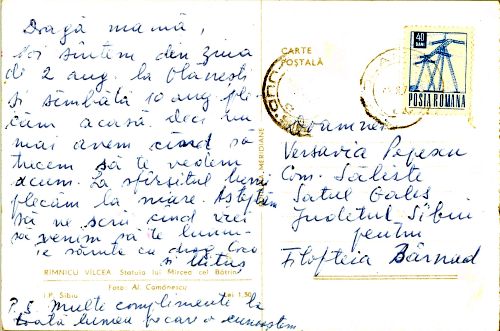 Dragă mamă,
Noi sîntem din ziua
de 2 aug. la Olănești
și sîmbătă 10 aug ple
căm acasă. Deci nu
mai avem cînd să
trecem să te vedem
acum. La sfîrșitul lunii
plecăm la mare. Așteptăm
să ne scrii cînd vrei
să venim să te luăm
te sărută cu drag
și Mitus
RIMNICU VÎLCEA Statuia lui Mircea cel Bătrîn
Foto: Al. Comănescu
I.P. Sibiu Lei 1,50
P.S. Multe complimente la
toată lumea pe care o cunoaștem
MERIDIANE
CARTE
POȘTALĂ
40
BANI
POSTA ROMANA
Doamnei
Versavia Popescu
Com. Săliște
Satul Galeș
Județul Sibiu
pentru
Filofteia Bărnad